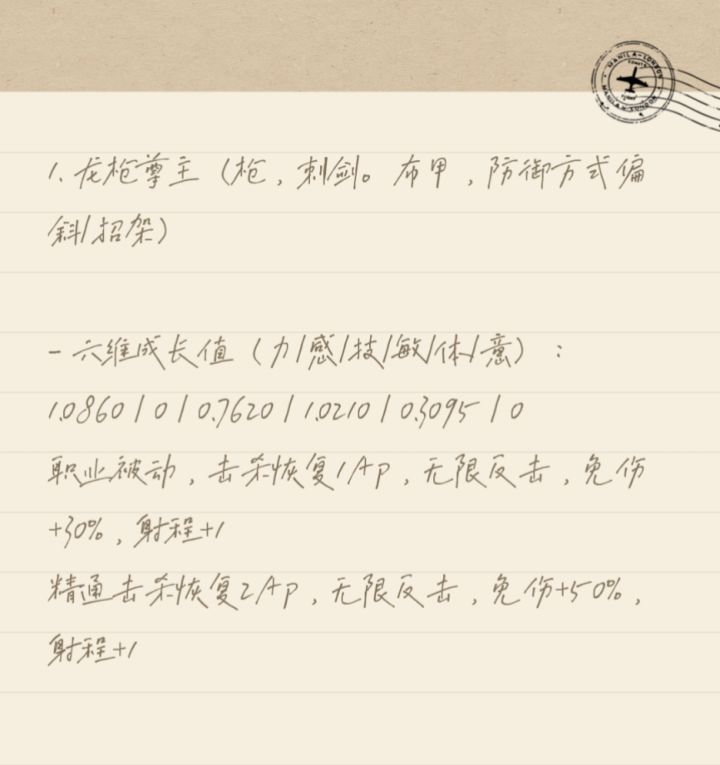 1. 龙枪尊主（枪，刺剑。布甲，防御方式偏
斜/招架）
- 六维成长值（力/感/技/敏/体/意）：
1.0860 / 0 / 0.7620 / 1.0210 / 0.3095 / 0
职业被动，击杀恢复1AP，无限反击，免伤
+30%，射程+1
精通击杀恢复2AP，无限反击，免伤+50%，
射程+1
MANILA-LONDON
MANILA-LONDON